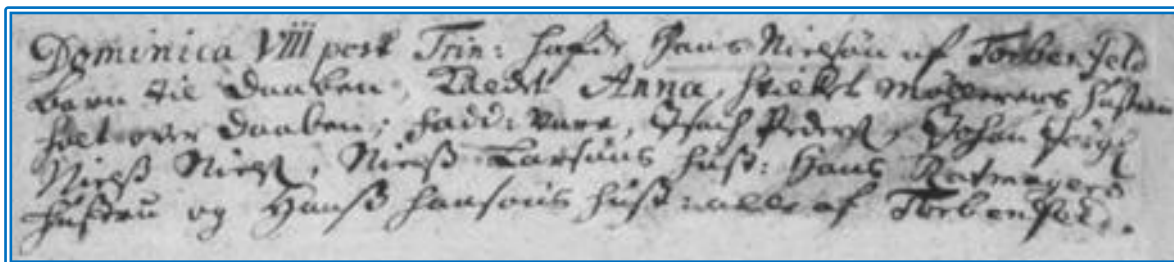 Dominica VIII post Trin: hafde Hans Nielsøn af Torbenfeld
barn til Daaben, Anna, Møllerens hustru
holt over Daaben; fadd: vare, Isach Peders, Johan
Nielß Niels, Nielß Larsøns hust: Hans
hustru og Hanß hansøns hust: alle af Torbenfeld.